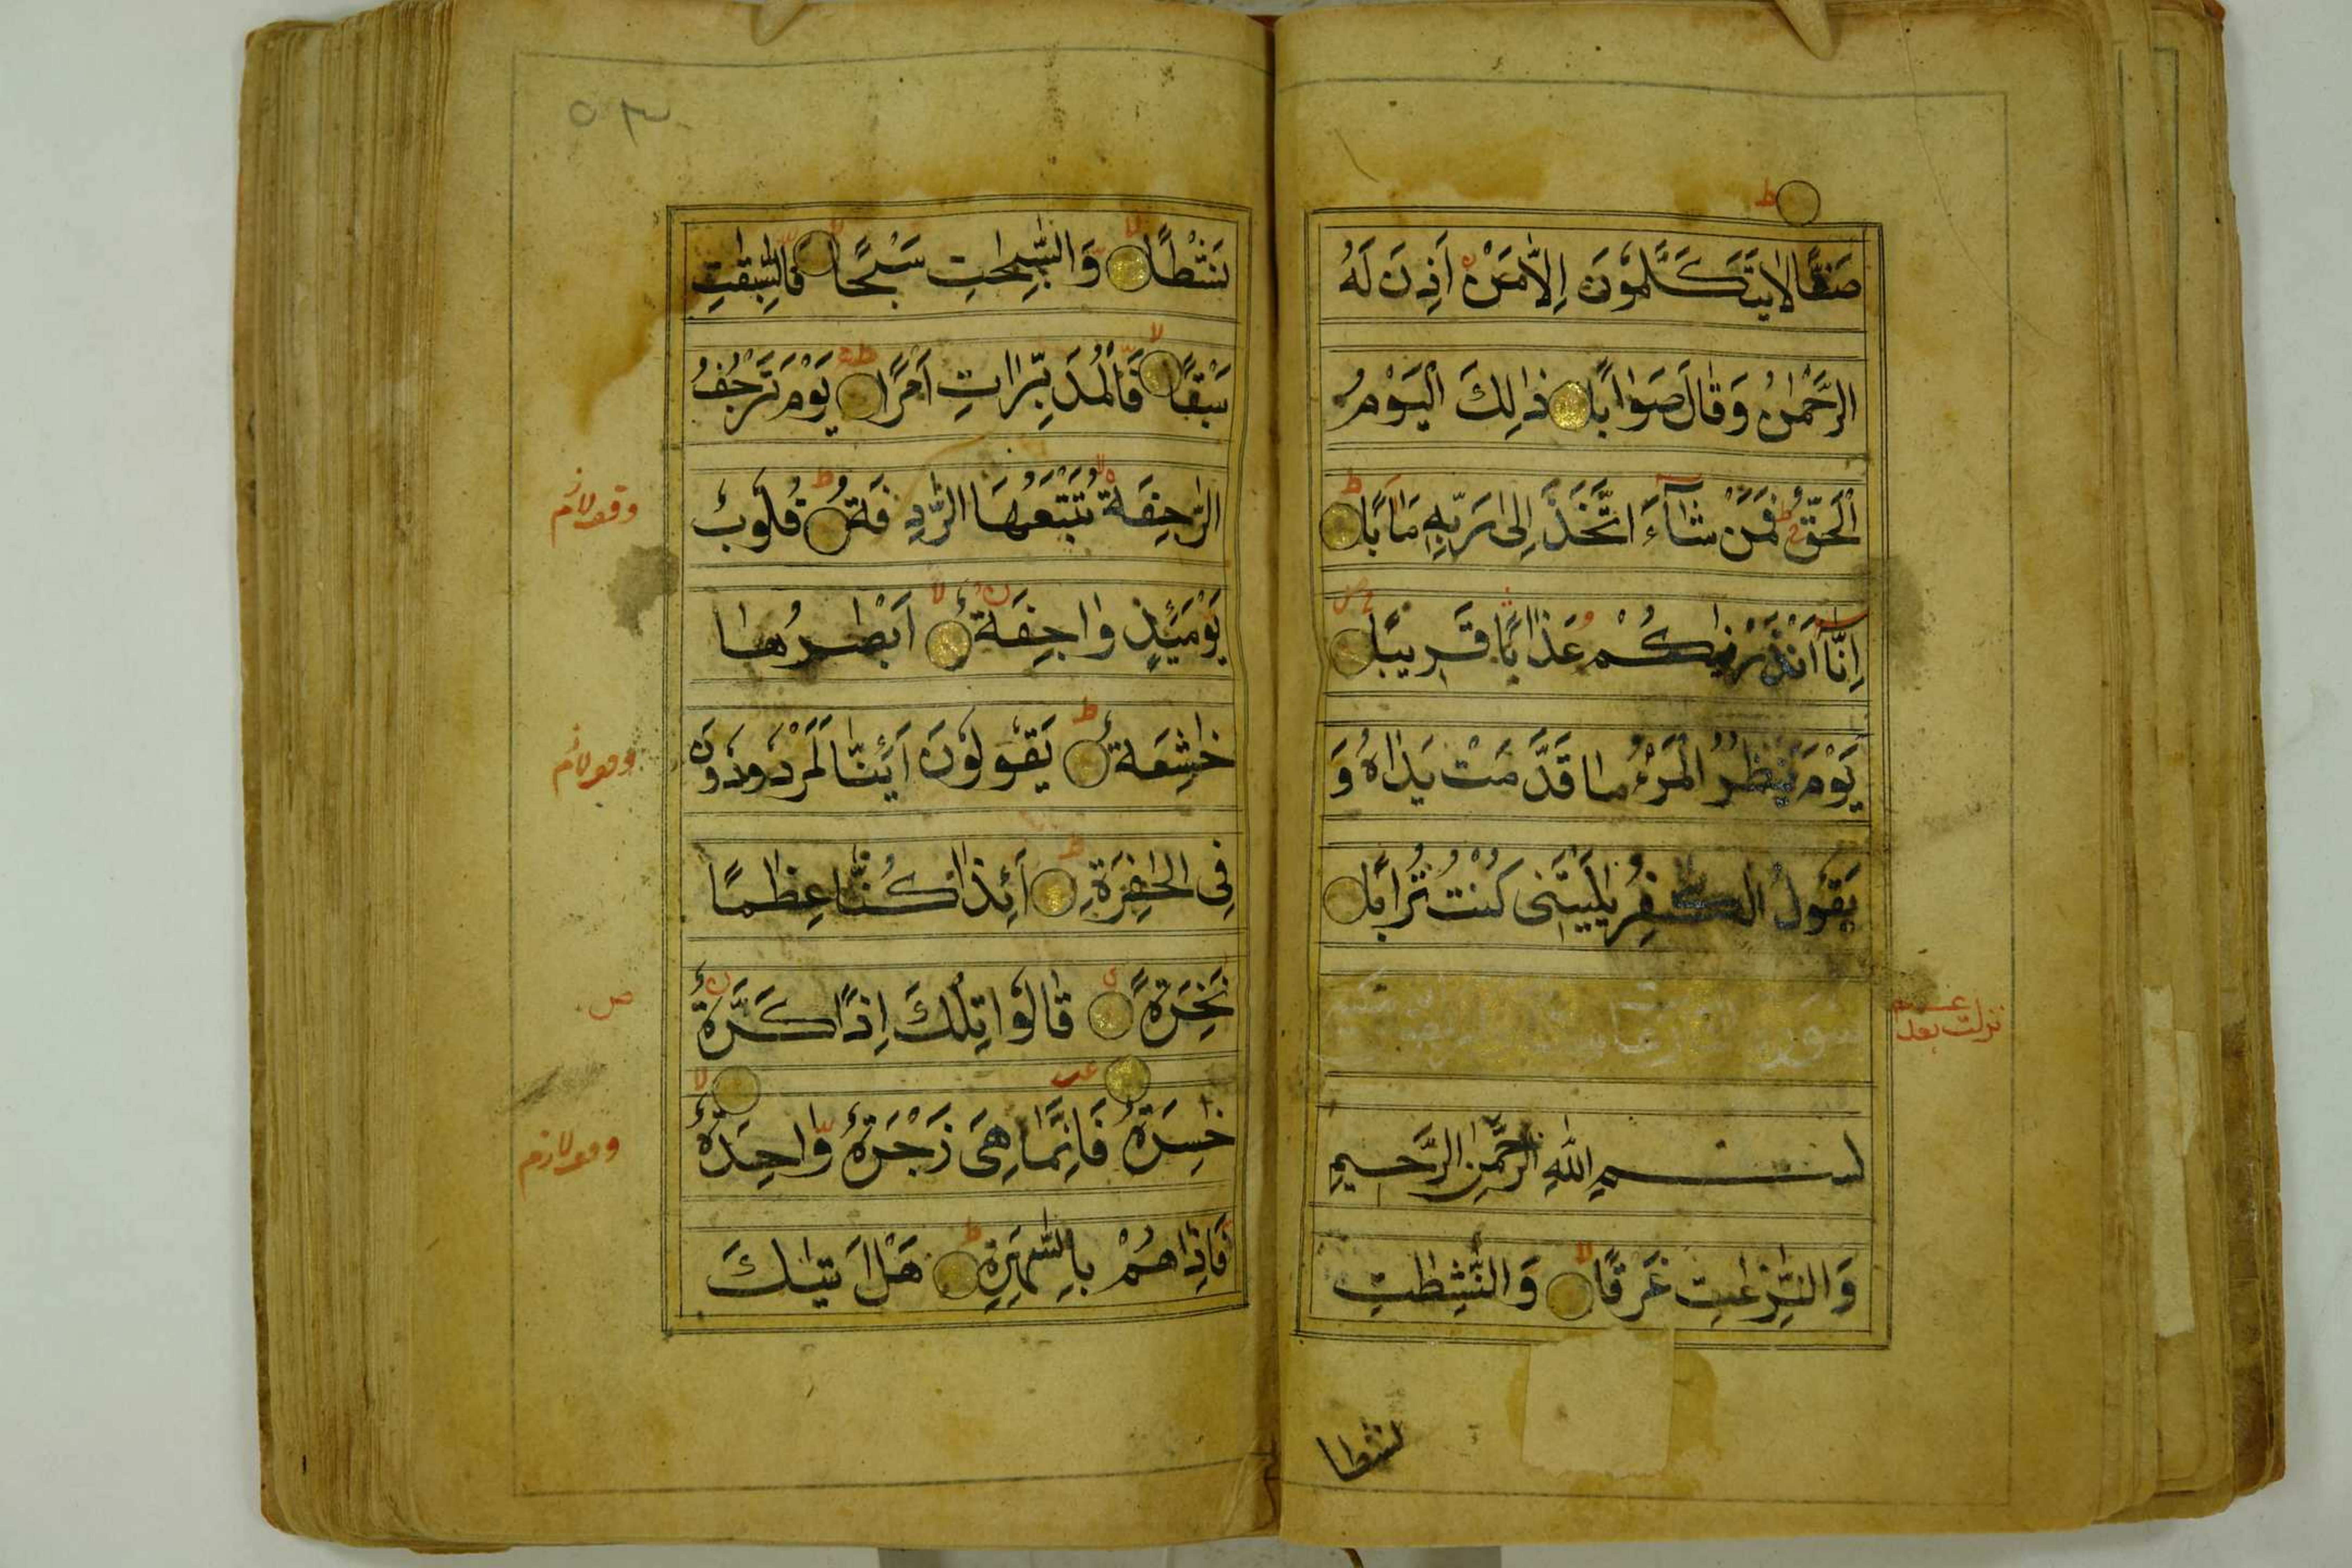 صَفًّا لَا يَتَكَلَّمُونَ اِلَّا مَنْ اَذِنَ لَهُ
الرَّحْمٰنُ وَقَالَ صَوَابًا ذٰلِكَ الْيَوْمُ
الْحَقُّ فَمَنْ شَآءَ اتَّخَذَ اِلٰى رَبِّهٖ مَاٰبًا
اِنَّآ اَنْذَرْنٰكُمْ عَذَابًا قَرِيْبًا
يَوْمَ يَنْظُرُ الْمَرْءُ مَا قَدَّمَتْ يَدَاهُ وَ
يَقُوْلُ الْكٰفِرُ يٰلَيْتَنِى كُنْتُ تُرَابًا
سورة
نزلت بعد
بسم اللهِ الرَّحْمٰنِ الرَّحِيمِ
وَالنّٰزِعٰتِ غَرْقًا وَالنّٰشِطٰتِ
نشطا
٥٣
نَشْطًا وَالسّٰبِحٰتِ سَبْحًا فَالسّٰبِقٰتِ
سَبْقًا فَالْمُدَبِّرَاتِ اَمْرًا يَوْمَ تَرْجُفُ
الرَّاجِفَةُ تَتْبَعُهَا الرَّادِفَةُ قُلُوْبٌ
وقف لازم
يَوْمَئِذٍ وَاجِفَةٌ اَبْصَارُهَا
خَاشِعَةٌ يَقُوْلُوْنَ اَئِنَّا لَمَرْدُوْدُوْنَ
وقف لازم
فِى الْحَافِرَةِ اَئِذَا كُنَّا عِظٰمًا
نَخِرَةً قَالُوْا تِلْكَ اِذًا كَرَّةٌ
ص
خَاسِرَةٌ فَاِنَّمَا هِىَ زَجْرَةٌ وَّاحِدَةٌ
وقف لازم
فَاِذَا هُمْ بِالسَّاهِرَةِ هَلْ اَتٰىكَ